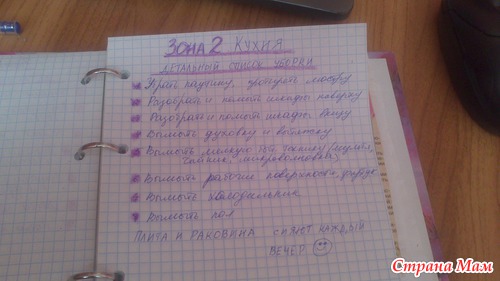 ЗОНА 2 КУХНЯ
ДЕТАЛЬНЫЙ СПИСОК УБОРКИ
Убрать паутину, протереть люстру
Разобрать и помыть шкафы наверху
Разобрать и помыть шкафы внизу
Вымыть духовку и вытяжку
Вымыть мелкую быт. технику (мульт.,
чайник, микроволновка)
Вымыть рабочие поверхности, фартук
Вымыть холодильник
Вымыть пол
ПЛИТА И РАКОВИНА СИЯЮТ КАЖДЫЙ
ВЕЧЕР
Страна Мам